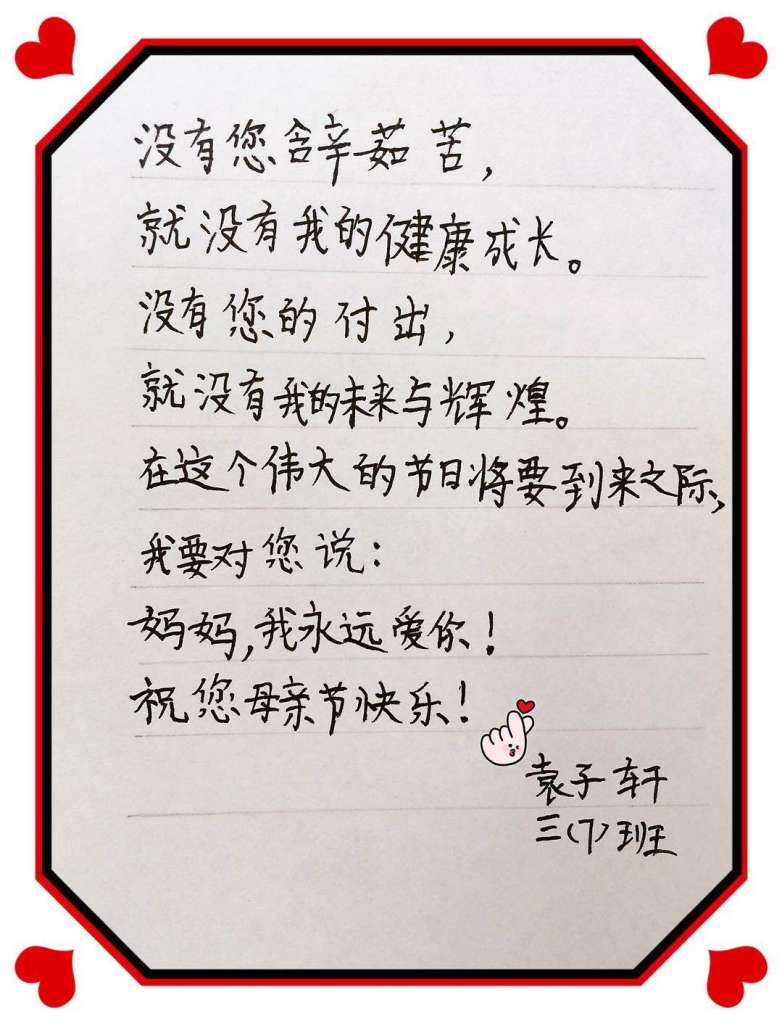 没有您含辛茹苦，
就没有我的健康成长。
没有您的付出，
就没有我的未来与辉煌。
在这个伟大的节日将要到来之际，
我要对您说：
妈妈，我永远爱你！
祝您母亲节快乐！
袁子轩
三（7）班